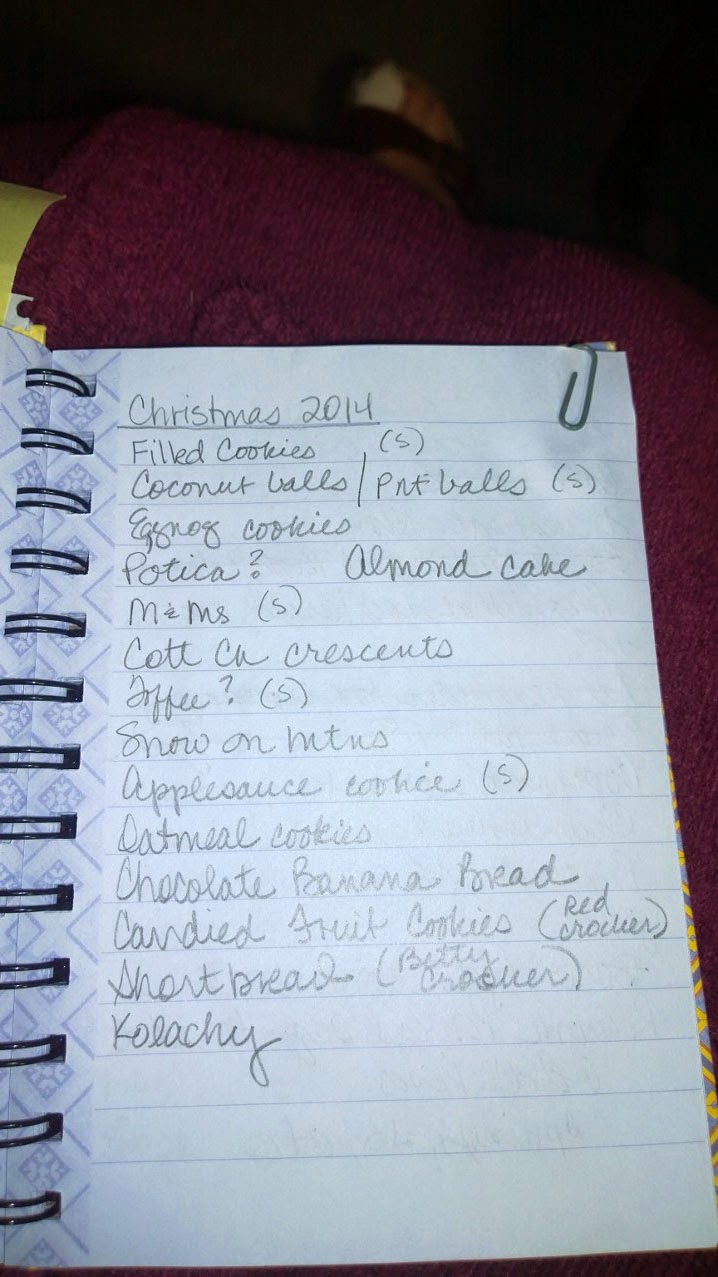 Christmas 2014
Filled Cookies (S)
Coconut balls / Pnt balls (S)
Eggnog cookies
Potica? Almond cake
M&Ms (S)
Cott Ch crescents
Toffee? (S)
Snow on Mtns
Applesauce cookie (S)
Oatmeal cookies
Chocolate Banana Bread
Candied Fruit Cookies (Red Crocker)
Shortbread (Betty Crocker)
Kolachy